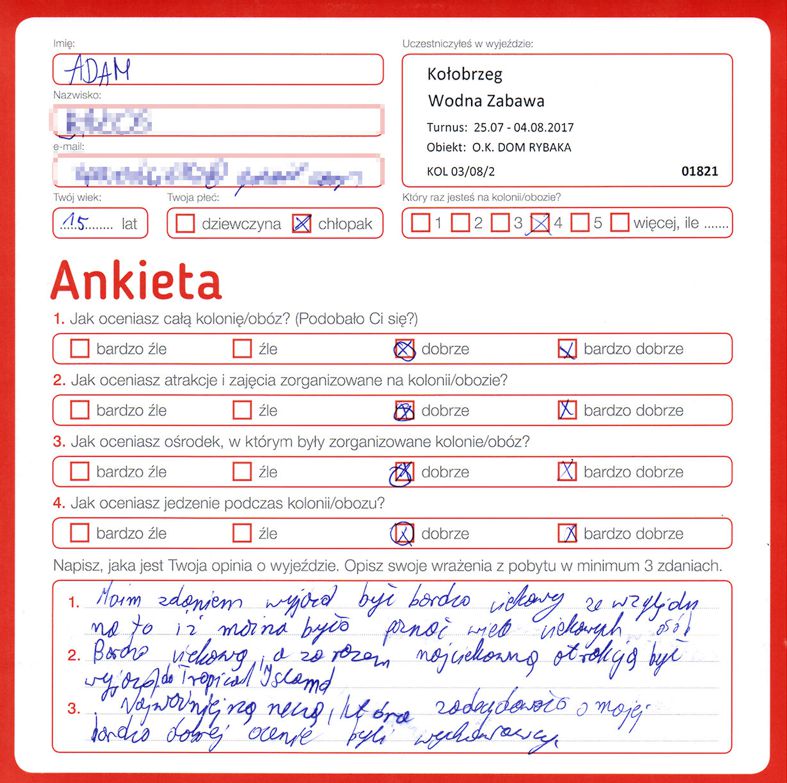 Imię:
ADAM
Uczestniczyłeś w wyjeździe:
Kołobrzeg
Wodna Zabawa
Turnus: 25.07 - 04.08.2017
Obiekt: O.K. DOM RYBAKA
KOL 03/08/2 01821
Nazwisko:
e-mail:
Twój wiek:
15 lat
Twoja płeć:
dziewczyna chłopak
Który raz jesteś na kolonii/obozie?
1 2 3 4 5 więcej, ile .......
Ankieta
1. Jak oceniasz całą kolonię/obóz? (Podobało Ci się?)
bardzo źle źle dobrze bardzo dobrze
2. Jak oceniasz atrakcje i zajęcia zorganizowane na kolonii/obozie?
bardzo źle źle dobrze bardzo dobrze
3. Jak oceniasz ośrodek, w którym były zorganizowane kolonie/obóz?
bardzo źle źle dobrze bardzo dobrze
4. Jak oceniasz jedzenie podczas kolonii/obozu?
bardzo źle źle dobrze bardzo dobrze
Napisz, jaka jest Twoja opinia o wyjeździe. Opisz swoje wrażenia z pobytu w minimum 3 zdaniach.
1. Moim zdaniem wyjazd był bardzo ciekawy ze względu
na to iż można było poznać wiele ciekawych osób
2. Bardzo ciekawą, a zarazem najciekawszą atrakcją był
wyjazd do Tropical Island
3. Najważniejszą rzeczą, która zadecydowała o mojej
bardzo dobrej ocenie byli wychowawcy.